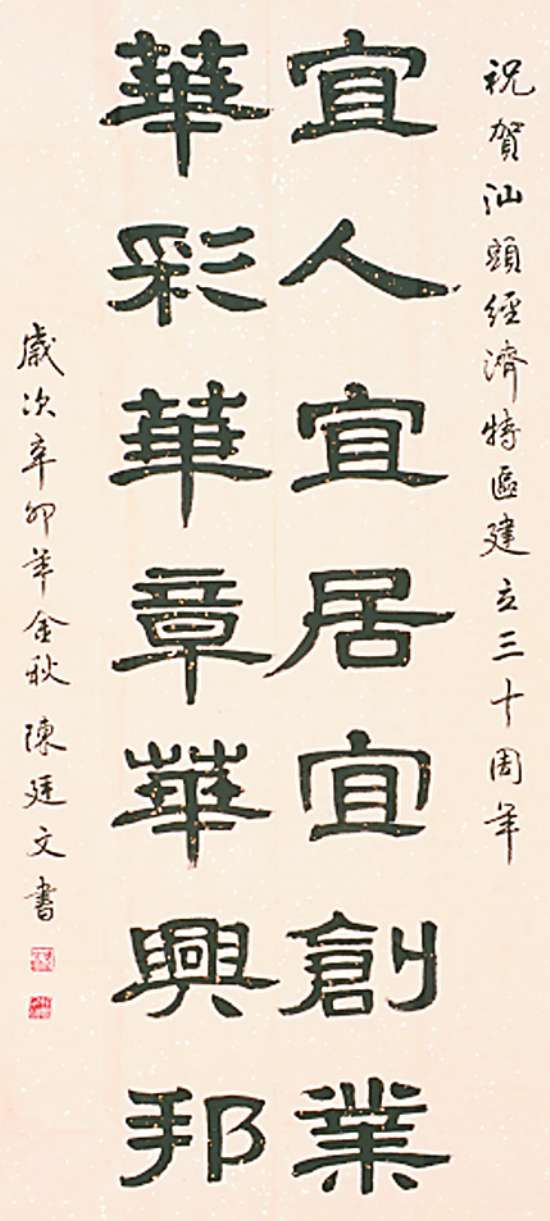 祝賀汕頭經濟特區建立三十周年
宜人宜居宜創業
華彩華章華興邦
歲次辛卯年金秋 陳廷文書